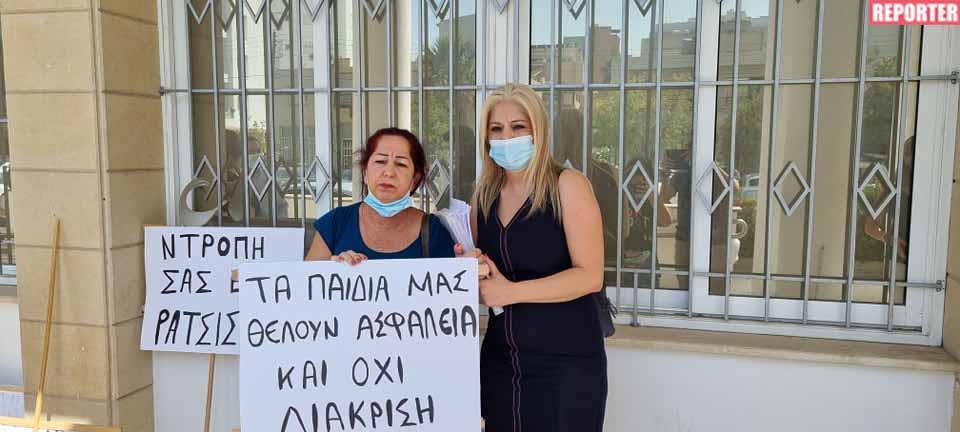 REPORTER
ΝΤΡΟΠΗ
ΣΑΣ
ΡΑΤΣΙΣ
ΤΑ ΠΑΙΔΙΑ ΜΑΣ
ΘΕΛΟΥΝ ΑΣΦΑΛΕΙΑ
ΚΑΙ ΟΧΙ
ΔΙΑΚΡΙΣΗ